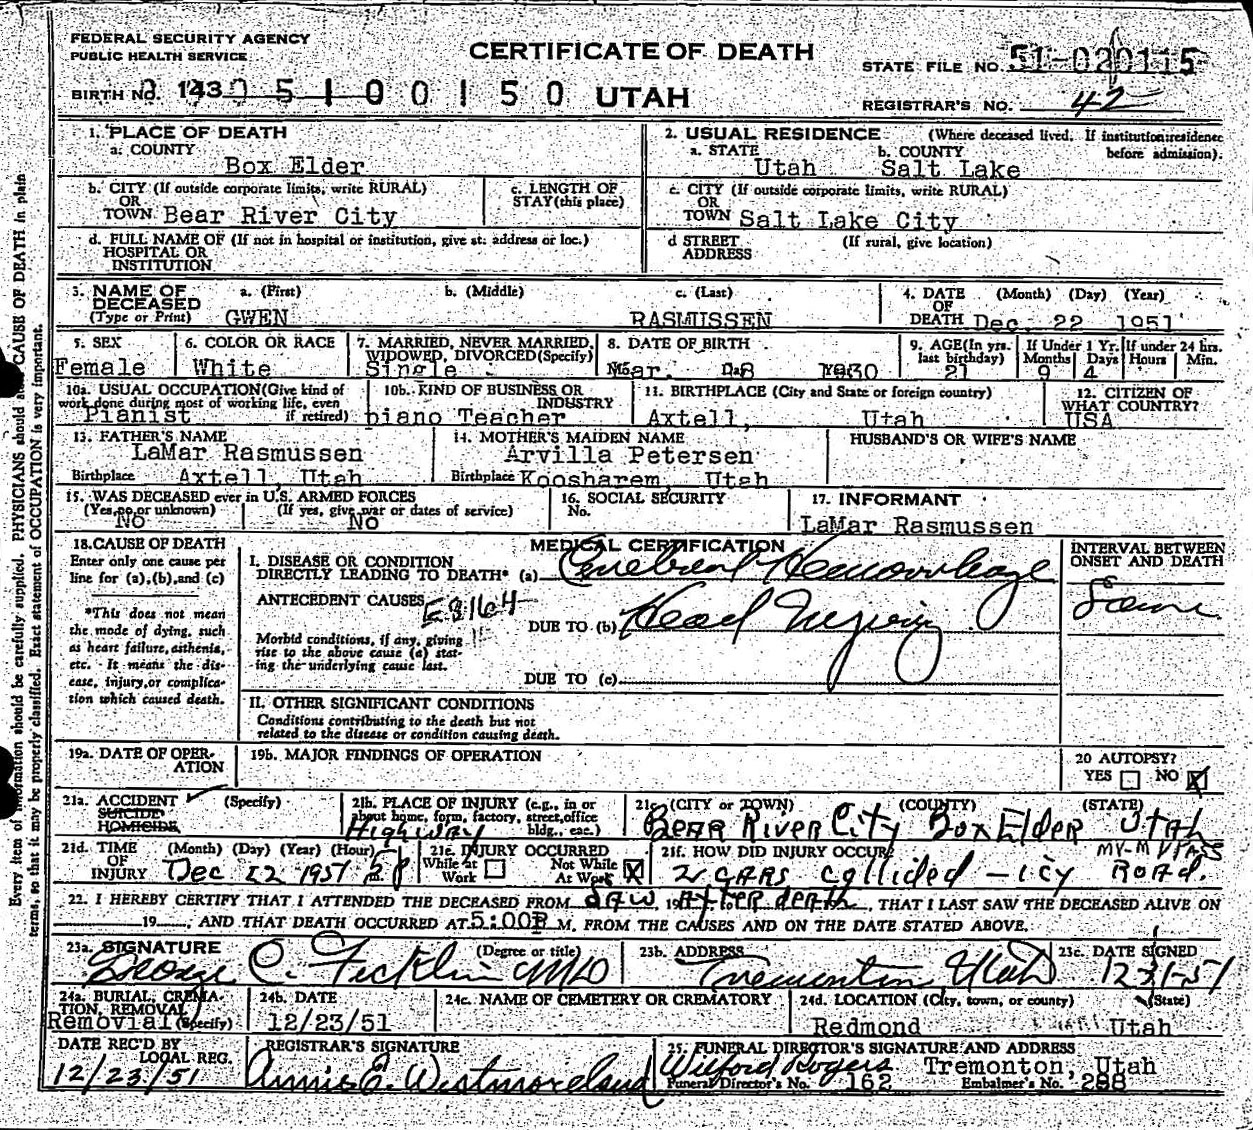 FEDERAL SECURITY AGENCY
PUBLIC HEALTH SERVICE
CERTIFICATE OF DEATH
STATE FILE NO. 51-020115
BIRTH NO. 143 0 5 1 0 0 1 5 0 UTAH
REGISTRAR'S NO. 42
1. PLACE OF DEATH
a. COUNTY
Box Elder
2. USUAL RESIDENCE (Where deceased lived. If institution: residence before admission).
a. STATE b. COUNTY
Utah Salt Lake
b. CITY (If outside corporate limits, write RURAL)
OR
TOWN Bear River City
c. LENGTH OF
STAY (this place)
c. CITY (If outside corporate limits, write RURAL)
OR
TOWN Salt Lake City
d. FULL NAME OF (If not in hospital or institution, give st. address or loc.)
HOSPITAL OR
INSTITUTION
d STREET (If rural, give location)
ADDRESS
3. NAME OF DECEASED a. (First) b. (Middle) c. (Last)
(Type or Print) GWEN RASMUSSEN
4. DATE OF DEATH (Month) (Day) (Year)
Dec. 22 1951
5. SEX
Female
6. COLOR OR RACE
White
7. MARRIED, NEVER MARRIED,
WIDOWED, DIVORCED (Specify)
Single
8. DATE OF BIRTH
Mar. 8 1930
9. AGE (In yrs. last birthday)
21
If Under 1 Yr. If under 24 hrs.
Months Days Hours Min.
9 4
10a. USUAL OCCUPATION (Give kind of
work done during most of working life, even
if retired)
Pianist
10b. KIND OF BUSINESS OR
INDUSTRY
piano Teacher
11. BIRTHPLACE (City and State or foreign country)
Axtell, Utah
12. CITIZEN OF
WHAT COUNTRY?
USA
13. FATHER'S NAME
LaMar Rasmussen
Birthplace Axtell, Utah
14. MOTHER'S MAIDEN NAME
Arvilla Petersen
Birthplace Koosharem, Utah
HUSBAND'S OR WIFE'S NAME
15. WAS DECEASED ever in U.S. ARMED FORCES
(Yes, no, or unknown) (If yes, give war or dates of service)
No No
16. SOCIAL SECURITY
No.
17. INFORMANT
LaMar Rasmussen
18. CAUSE OF DEATH
Enter only one cause per
line for (a), (b), and (c)
*This does not mean
the mode of dying, such
as heart failure, asthenia,
etc. It means the dis-
ease, injury, or complica-
tion which caused death.
MEDICAL CERTIFICATION
I. DISEASE OR CONDITION
DIRECTLY LEADING TO DEATH* (a) Cerebral Hemorrhage
ANTECEDENT CAUSES E8164
DUE TO (b) Head Injury
Morbid conditions, if any, giving
rise to the above cause (a) stat-
ing the underlying cause last.
DUE TO (c)
II. OTHER SIGNIFICANT CONDITIONS
Conditions contributing to the death but not
related to the disease or condition causing death.
INTERVAL BETWEEN
ONSET AND DEATH
Same
19a. DATE OF OPER-
ATION
19b. MAJOR FINDINGS OF OPERATION
20 AUTOPSY?
YES NO X
21a. ACCIDENT ✓ (Specify)
SUICIDE
HOMICIDE
21b. PLACE OF INJURY (e.g., in or
about home, farm, factory, street, office
bldg., etc.)
Highway
21c. (CITY or TOWN) (COUNTY) (STATE)
Bear River City Box Elder Utah
21d. TIME OF INJURY (Month) (Day) (Year) (Hour)
Dec 22 1951 5 P
21e. INJURY OCCURRED
While at Work Not While At Work X
21f. HOW DID INJURY OCCUR?
MV-MV PASS
2 cars collided - icy Road.
22. I HEREBY CERTIFY THAT I ATTENDED THE DECEASED FROM saw after death 19, THAT I LAST SAW THE DECEASED ALIVE ON
19, AND THAT DEATH OCCURRED AT 5:00P M. FROM THE CAUSES AND ON THE DATE STATED ABOVE.
23a. SIGNATURE (Degree or title)
George C. Ficklin MD
23b. ADDRESS
Tremonton, Utah
23c. DATE SIGNED
12-31-51
24a. BURIAL, CREMA-
TION, REMOVAL
(Specify)
Removial
24b. DATE
12/23/51
24c. NAME OF CEMETERY OR CREMATORY
24d. LOCATION (City, town, or county) (State)
Redmond Utah
DATE REC'D BY
LOCAL REG.
12/23/51
REGISTRAR'S SIGNATURE
Annie E. Westmoreland
25. FUNERAL DIRECTOR'S SIGNATURE AND ADDRESS
Wilford Rogers Tremonton, Utah
Funeral Director's No. 162 Embalmer's No. 288
Every item of information should be carefully supplied. PHYSICIANS should state CAUSE OF DEATH in plain
terms, so that it may be properly classified. Exact statement of OCCUPATION is very important.